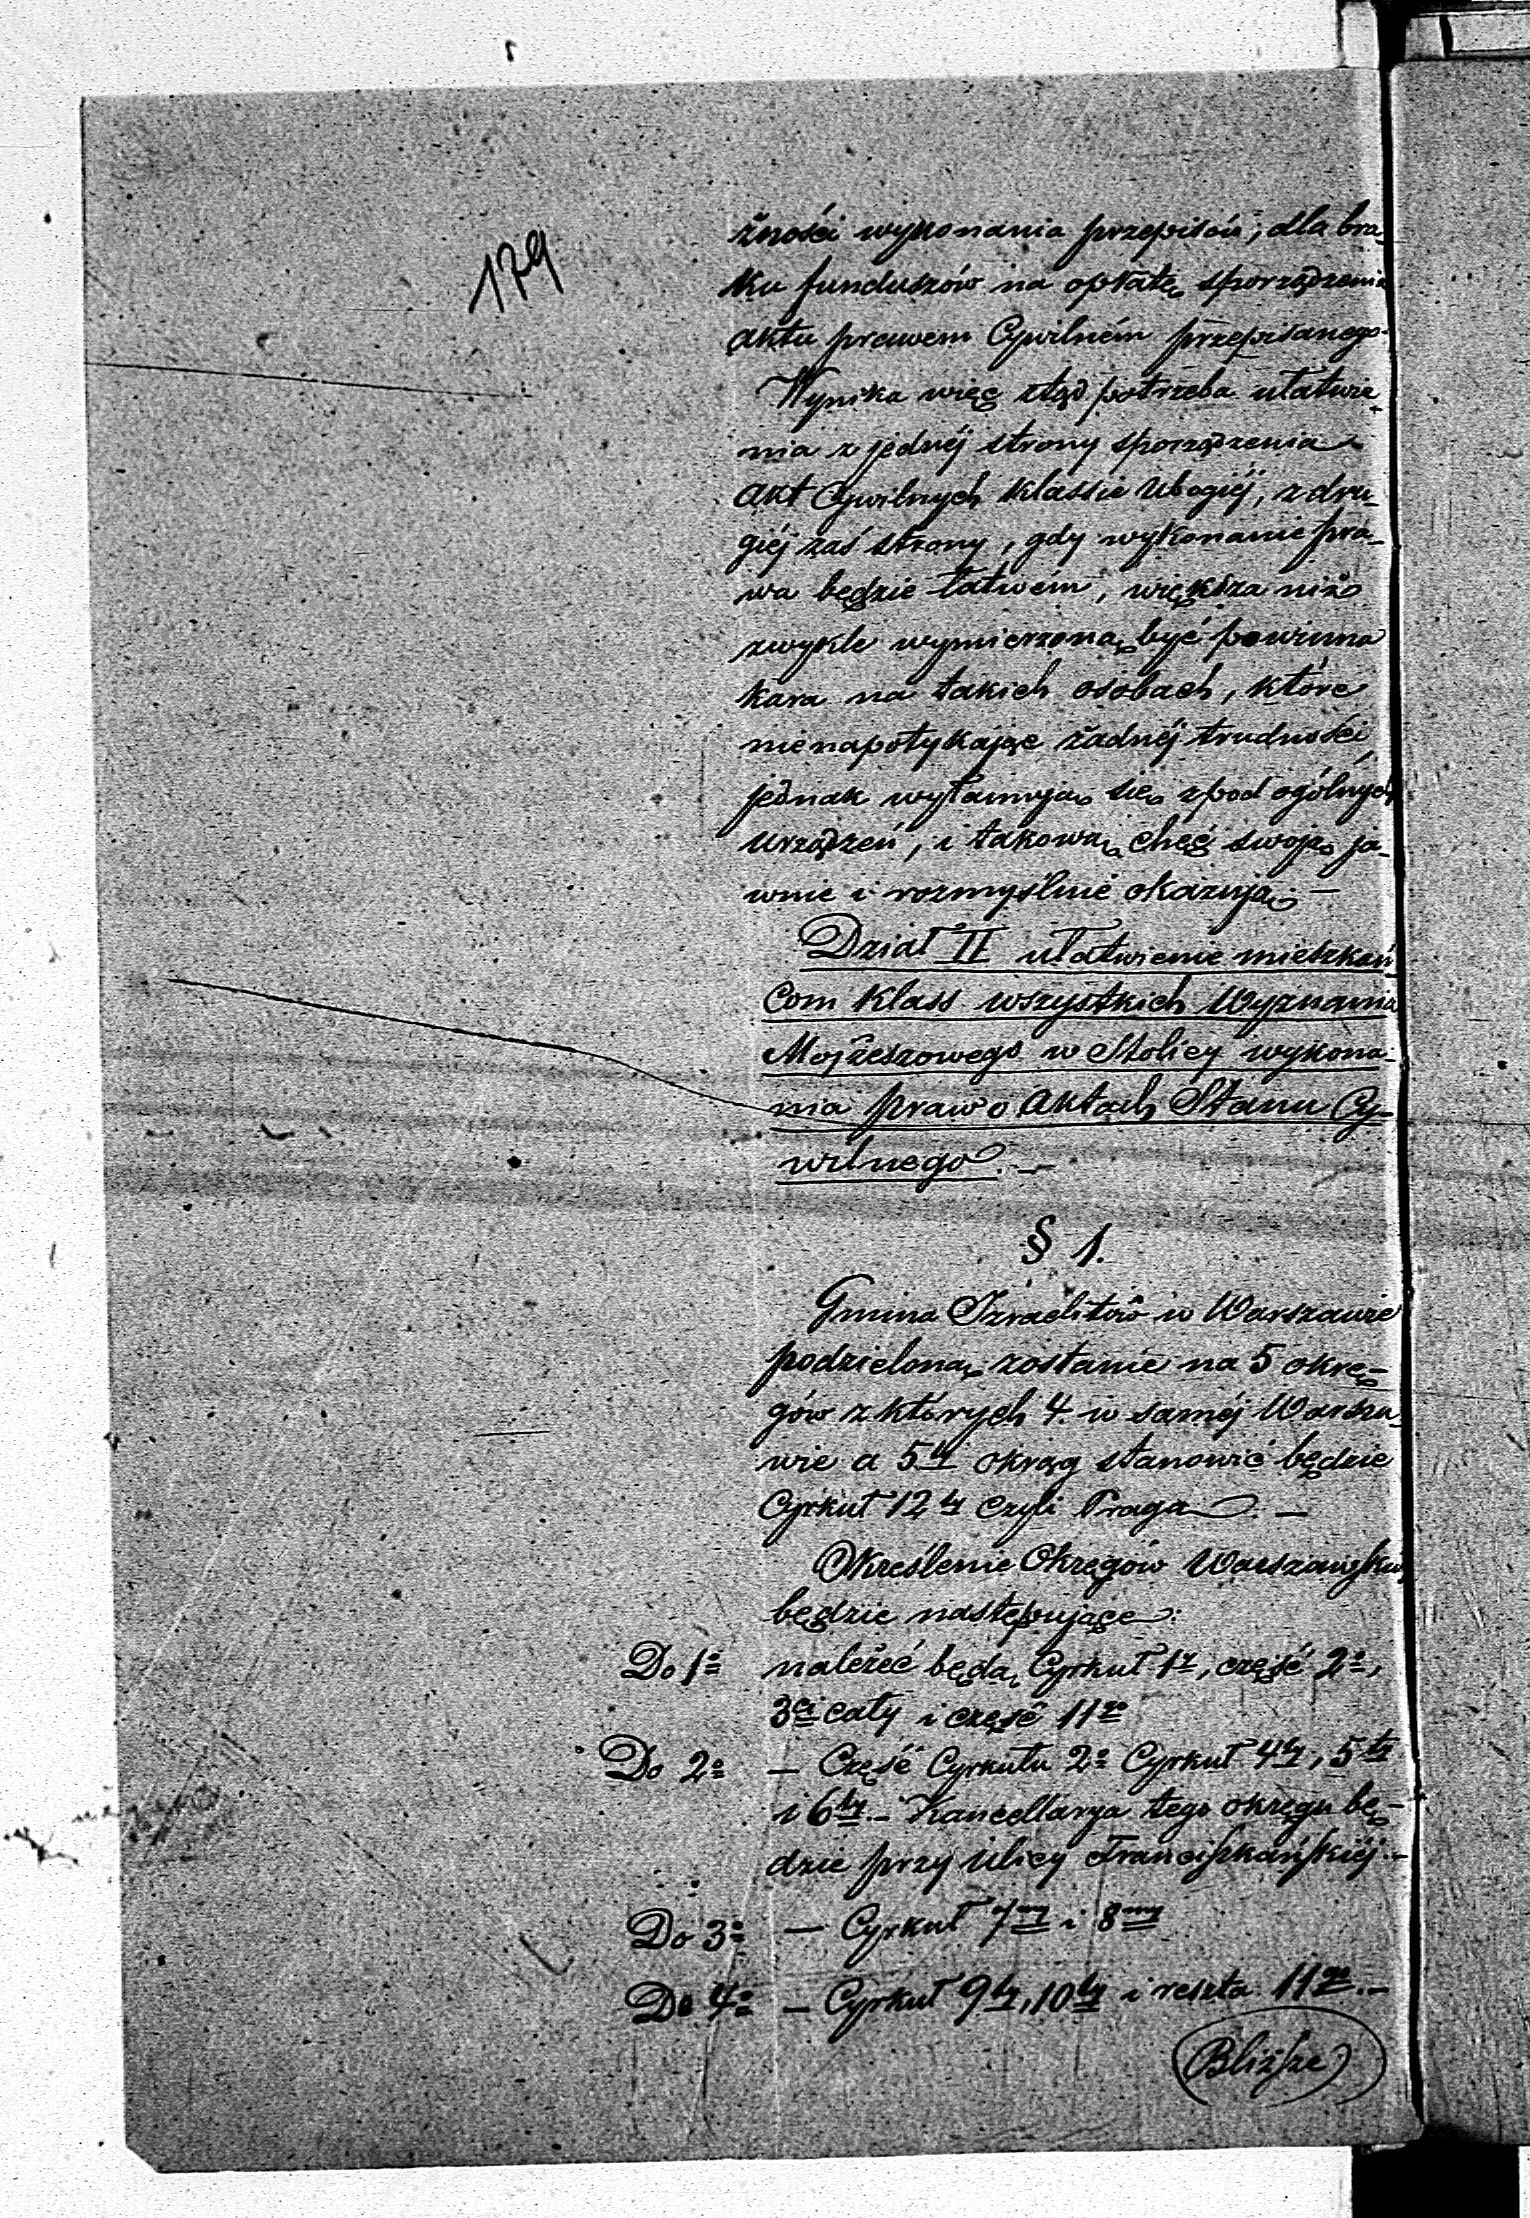 179
żności wykonania przepisów, dla bra-
ku funduszów na opłatę sporządzenia
aktu prawem Cywilném przepisanego.
Wynika więc ztąd potrzeba ułatwie-
nia z jednéj strony sporządzenia
akt Cywilnych klassie Ubogiéj, z dru-
giéj zaś strony, gdy wykonanie pra-
wa będzie łatwém, większa niż
zwykle wymierzoną być powinna
kara na takich osobach, które
nienapotykając żadnéj trudności
jednak wyłamują się z pod ogólnych
urządzeń, i takową chęć swoję ja-
wnie i rozmyślnie okazują. —
Dział II ułatwienie mieszkań
com klass wszystkich Wyznania
Mojżeszowego w Stolicy wykona-
nia praw o aktach Stanu Cy-
wilnego. —
§ 1.
Gmina Izraelitów w Warszawie
podzieloną zostanie na 5 okrę-
gów z których 4. w saméj Warsza-
wie a 5ty okrąg stanowić będzie
Cyrkuł 12ty czyli Praga. —
Określenie Okręgów Warszawskich
będzie następujące:
Do 1o należeć będą Cyrkuł 1y, część 2o,
3ci cały i część 11o
Do 2o — Część Cyrkułu 2o Cyrkuł 4ty, 5ty
i 6ty. – Kancellarya tego okręgu bę-
dzie przy Ulicy Franciszkańskiéj. —
Do 3o — Cyrkuł 7my i 8my
Do 4o — Cyrkuł 9ty, 10ty i reszta 11go. —
Bliższe